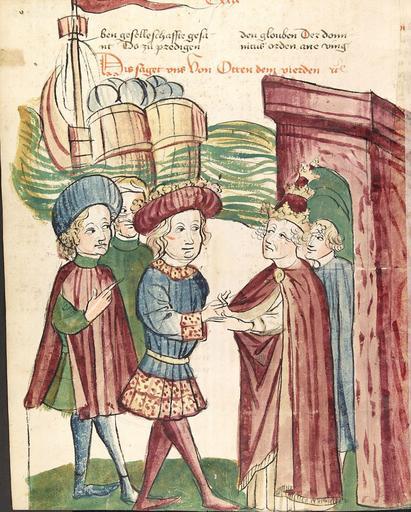 ben geselleschafft gesa
nt Do zü predigen
den glouben Der domi
nicus orden ane ving
Dis saget vns Von Otten dem vierden